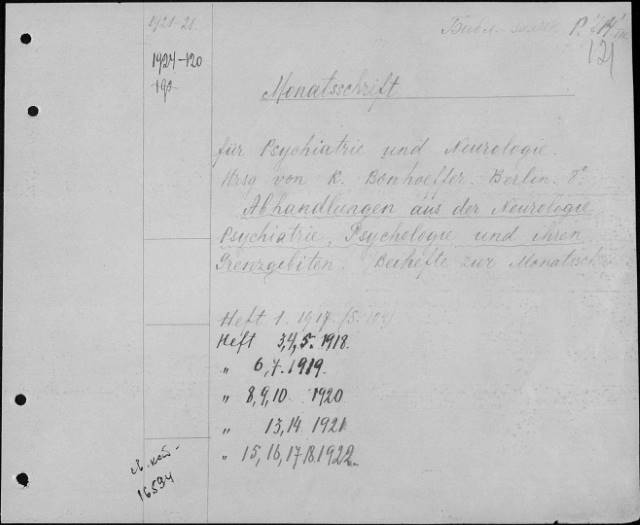 1921-21
1924-120
Monatsschrift
für Psychiatrie und Neurologie.
Hrsg von K. Bonhoeffer. Berlin. 8°
Abhandlungen aus der Neurologie
Psychiatrie, Psychologie und ihren
Grenzgebiten. Beihefte zur Monatsschr
Heft 1. 1917
Heft 3,4,5. 1918.
„ 6,7. 1919.
„ 8,9,10 1920
„ 13,14 1921
„ 15,16,17,18.1922.
16594